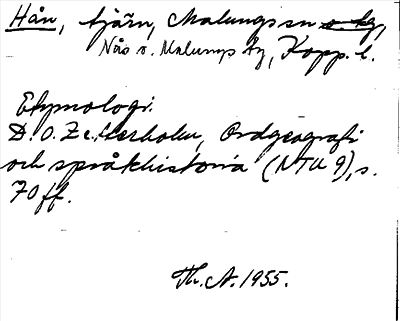 Hån, tjärn, Malungs sn o. hg,
Nås o. Malungs hg, Kopp. l.
Etymologi.
D. O. Zetterholm, Ordgeografi
och språkhistoria (NTU 9), s.
70 ff.
Th. A. 1955.